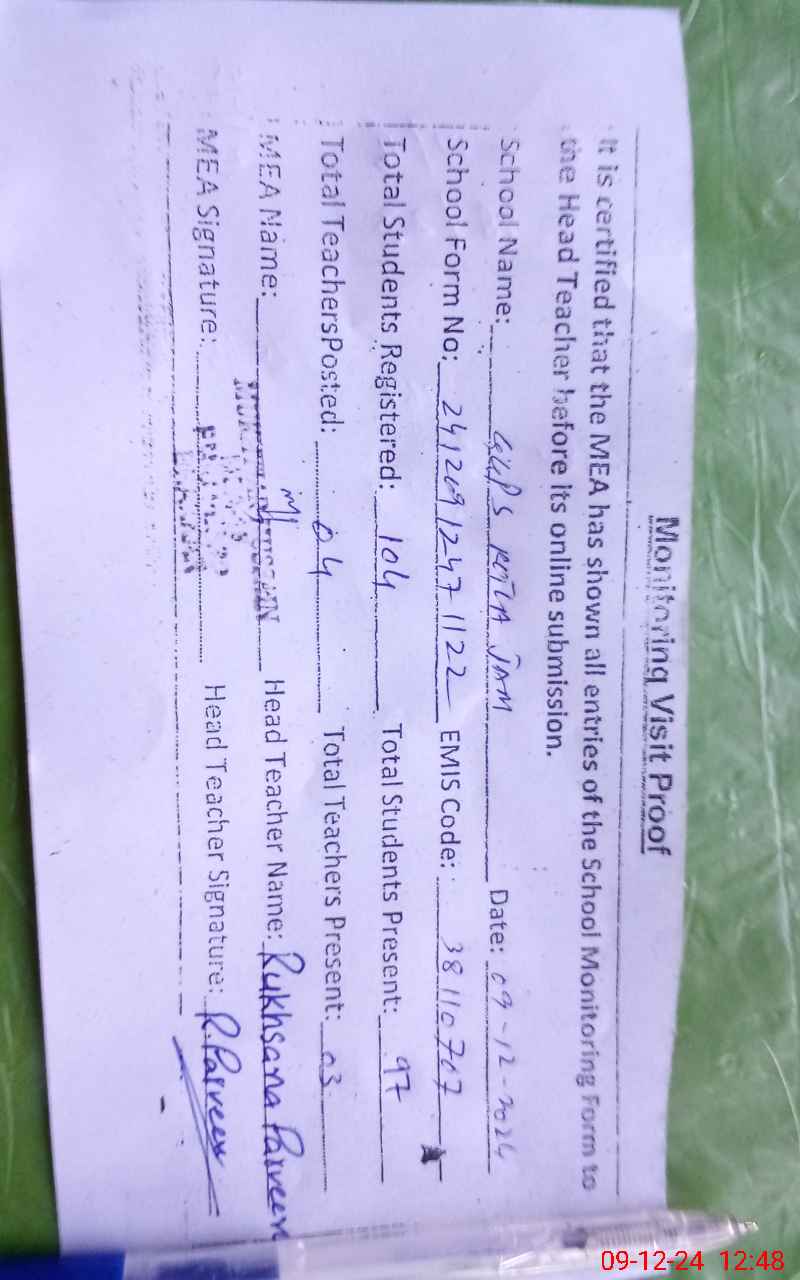 Monitoring Visit Proof
It is certified that the MEA has shown all entries of the School Monitoring Form to
the Head Teacher before its online submission.
School Name: GGPS KOTLA JAM Date: 09-12-2024
School Form No: 2412091247 1122 EMIS Code: 38110707
Total Students Registered: 104 Total Students Present: 97
Total TeachersPosted: 04 Total Teachers Present: 03
MEA Name: Head Teacher Name: Rukhsana Parveen
MEA Signature: Head Teacher Signature: R.Parveen
09-12-24 12:48